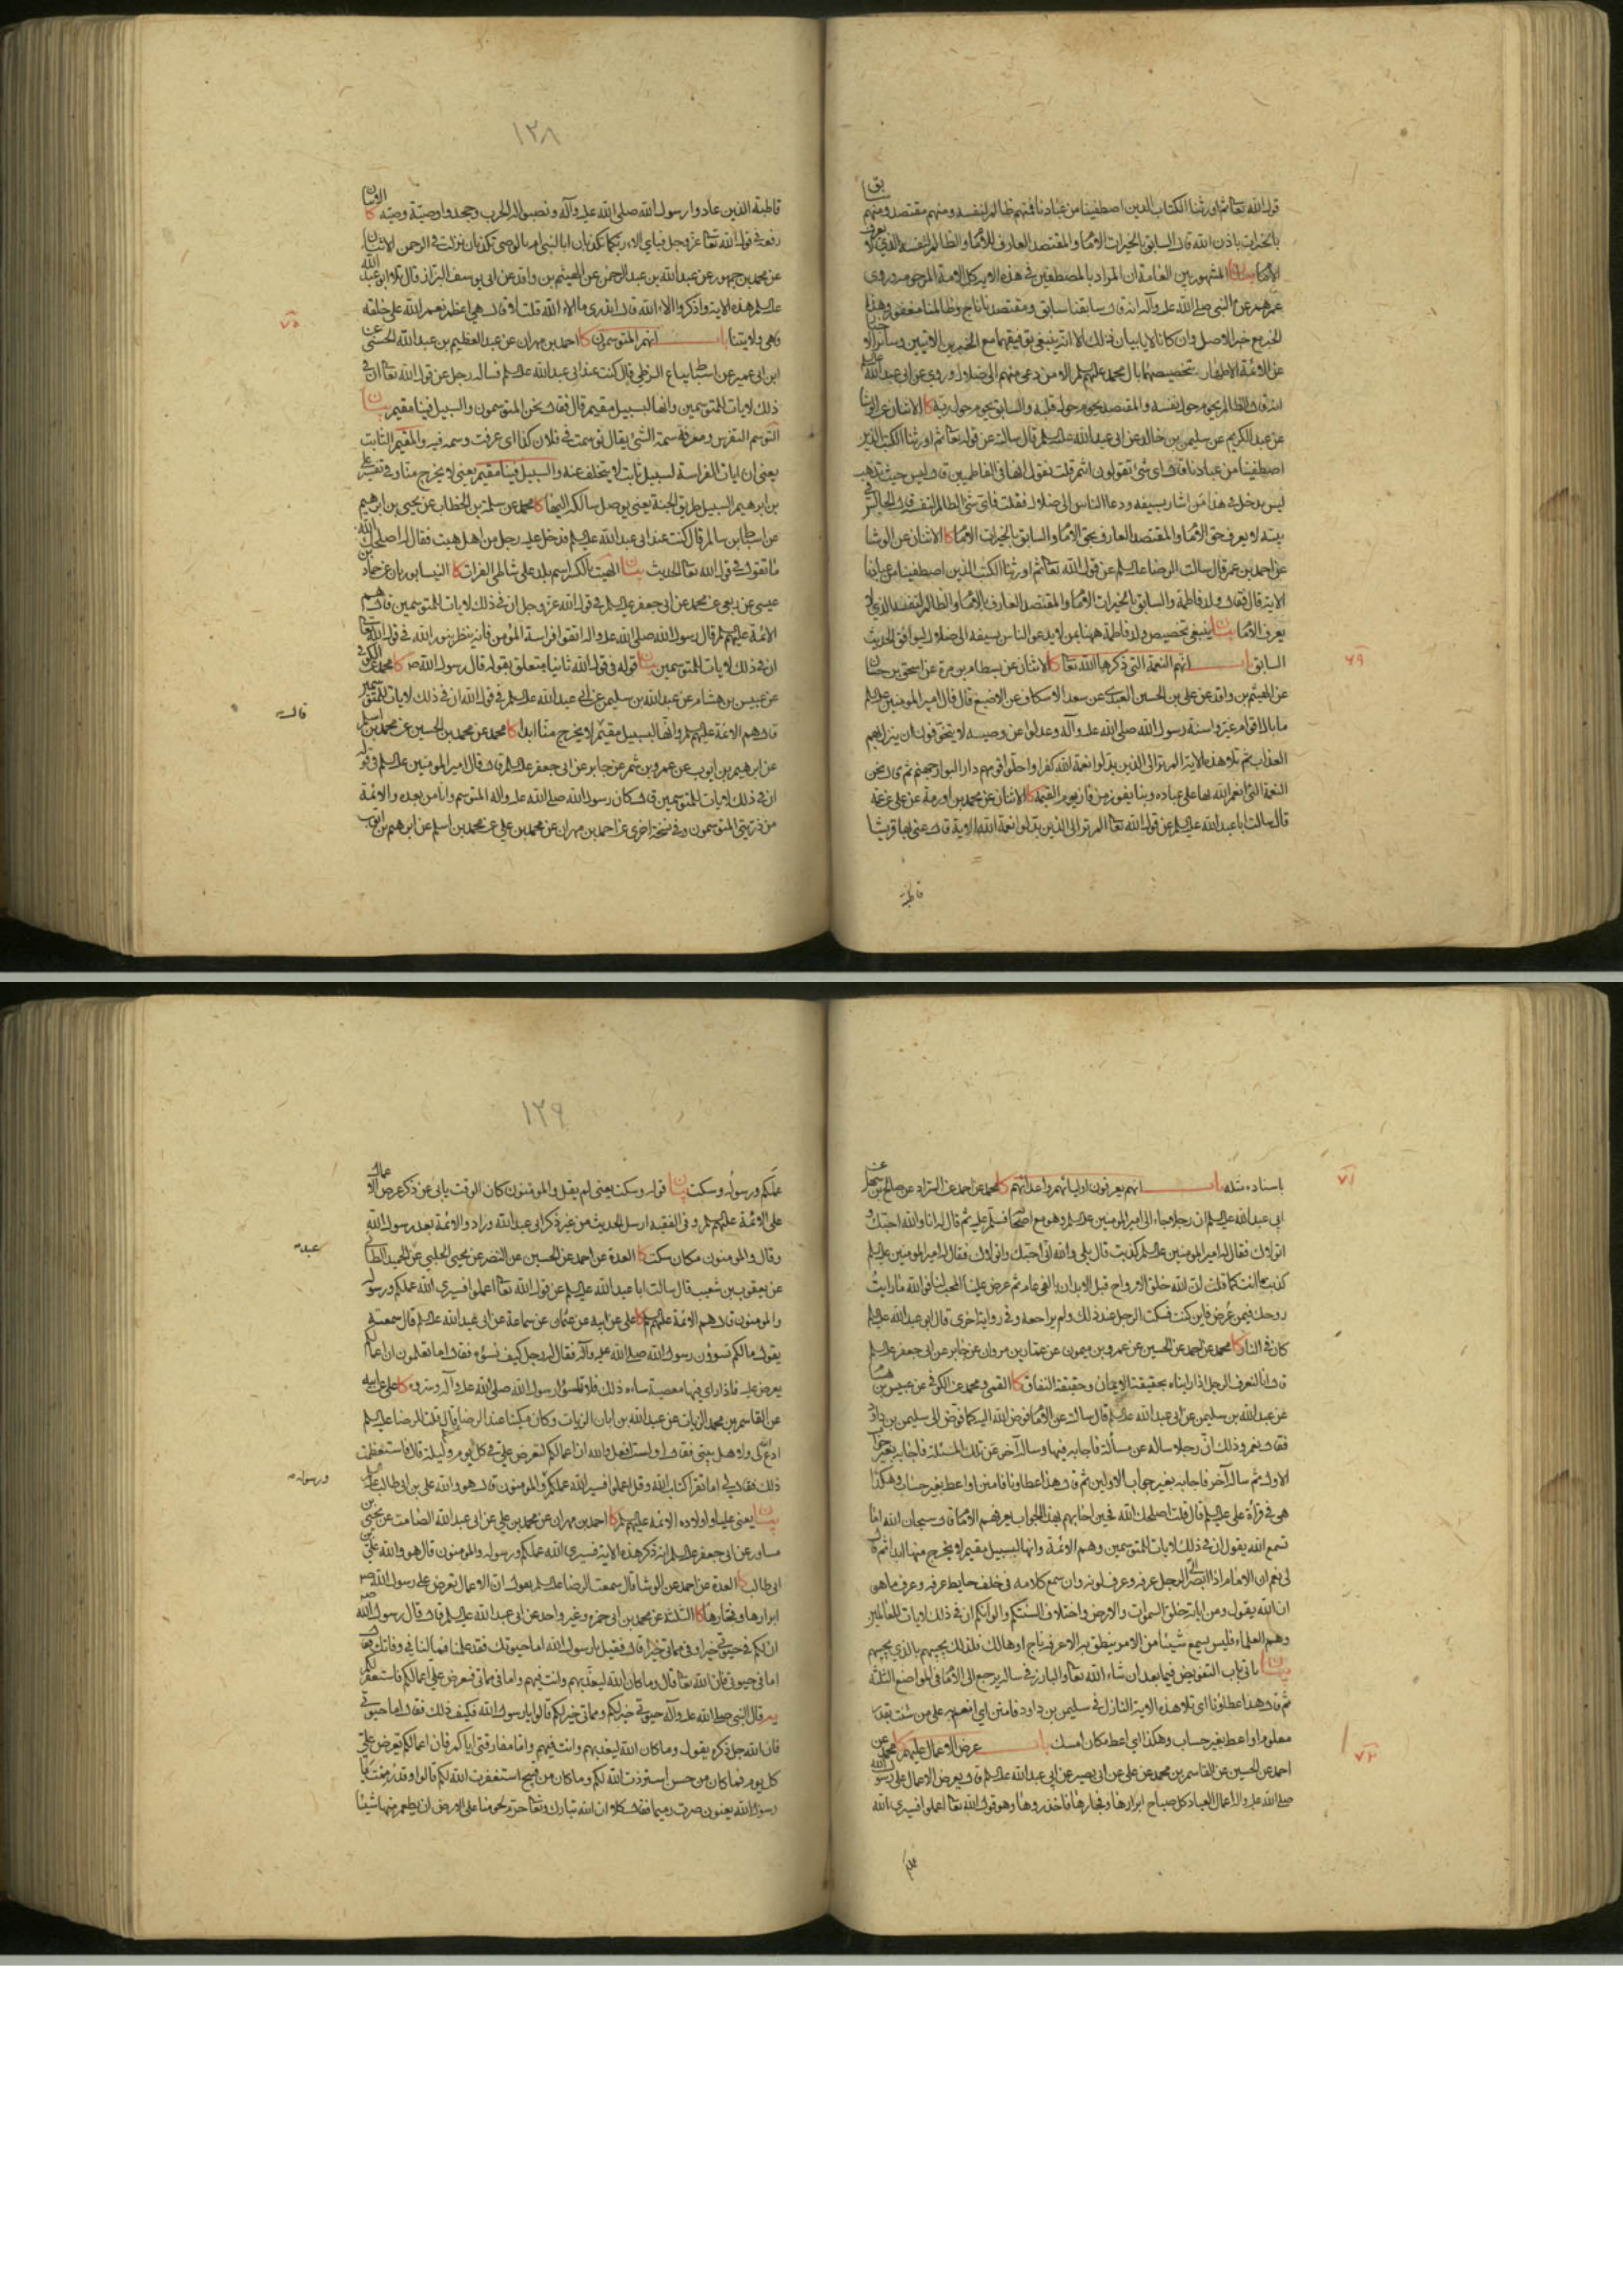 قول الله تعالى ثم اورثنا الكتاب الذين اصطفينا من عبادنا فمنهم ظالم لنفسه ومنهم مقتصد ومنهم سابق
بالخيرات باذن الله قال السابق بالخيرات الامام والمقتصد العارف للامام والظالم لنفسه الذي لا يعرف
الامام بيان المشهور بين العامة ان المراد بالمصطفين في هذه الاية كل الامة المرحومة وروى
عمر عن النبي صلى الله عليه وآله انه قال سابقنا سابق ومقتصدنا ناج وظالمنا مغفور له وهذا
الخبر مع خبر الاصل وان كانا لا
عن الائمة الاطهار تخصيصها بال محمد عليهم السلم الا من دعى منهم الى ضلال وروي عن ابي عبد الله عليه السلم
انه قال الظالم يحوم حول نفسه والمقتصد يحوم حول قلبه والسابق يحوم حول ربه كا الاثنان عن الوشا
عن عبد الكريم عن سليمن بن خالد عن ابي عبد الله عليه السلم قال سالته عن قوله تعالى ثم اورثنا الكتب الذين
اصطفينا من عبادنا فقال اي شئ تقولون انتم قلت نقول انها في الفاطميين قال ليس حيث تذهب
ليس يدخل في هذا من اشار بسيفه ودعا الناس الى ضلال فقلت فاي شئ الظالم لنفسه قال الجالس في
بيته لا يعرف حق الامام والمقتصد العارف بحق الامام والسابق بالخيرات الامام كا الاثنان عن الوشا
عن احمد بن عمر قال سالت الرضا عليه السلم عن قول الله تعالى ثم اورثنا الكتب الذين اصطفينا من عبادنا
الاية قال فقال ولد فاطمة والسابق بالخيرات الامام والمقتصد العارف بالامام والظالم لنفسه الذي لا
يعرف الامام بيان ينبغي تخصيص ولد فاطمة ههنا بمن لا يدعو الناس بسيفه الى ضلال ليوافق الحديث
السابق باب انهم النعمة التي ذكرها الله تعالى كا الاثنان عن بسطام بن مرة عن اسحق بن حسان
عن الهيثم بن واقد عن علي بن الحسين العبدي عن سعد الاسكاف عن الاصبغ قال قال امير المومنين عليه السلم
ما بال اقوام غيروا سنة رسول الله صلى الله عليه وآله وعدلوا عن وصيه لا يتخوفون ان ينزل بهم
العذاب ثم تلا هذه الاية الم تر الى الذين بدلوا نعمة الله كفرا واحلوا قومهم دار البوار جهنم ثم قال نحن
النعمة التي انعم الله بها على عباده وبنا يفوز من فاز يوم القيمة كا الاثنان عن محمد بن اورمة عن علي عن عمه
قال سالت ابا عبد الله عليه السلم عن قول الله تعالى الم تر الى الذين بدلوا نعمة الله الاية قال عنى بها قريشا
قاطبة
٦٩
١٢٨
قاطبة الذين عادوا رسول الله صلى الله عليه وآله ونصبوا له الحرب وجحدوا وصية وصيه كا الاثنان
رفعه في قول الله تعالى عز وجل فباي الاء ربكما تكذبان ابالنبي ام بالوصي تكذبان نزلت في الرحمن كا الاثنان
عن محمد بن جمهور عن عبد الله بن عبد الرحمن عن الهيثم بن واقد عن ابي يوسف البزاز قال تلا ابو عبد الله
عليه السلم هذه الاية واذكروا الاء الله قال اتدري ما الاء الله قلت لا قال هي اعظم نعم الله على خلقه
وهي ولايتنا باب انهم المتوسمون كا احمد بن مهران عن عبد العظيم بن عبد الله الحسني عن
ابن ابي عمير عن اسباط بياع الزطي قال كنت عند ابي عبد الله عليه السلم فساله رجل عن قول الله تعالى ان في
ذلك لايات للمتوسمين وانها لبسبيل مقيم قال فقال نحن المتوسمون والسبيل فينا مقيم بيان
التوسم التفرس ومعرفة سمة الشئ يقال توسمت في فلان كذا اي عرفت وسمه فيه والمقيم الثابت
يعني ان ايات الفراسة لسبيل ثابت لا يتخلف عنه والسبيل فينا مقيم يعني لا يخرج منا وفي تفسير علي
بن ابرهيم السبيل طريق الجنة يعني يوصل سالكه اليها كا محمد عن سلمة بن الخطاب عن يحيى بن ابرهيم
عن اسباط بن سالم قال كنت عند ابي عبد الله عليه السلم فدخل عليه رجل من اهل هيت فقال له اصلحك الله
ما تقول في قول الله تعالى الحديث بيان الهيت بالكسر اسم بلد على شاطئ الفرات كا النيسابوريان عن حماد بن
عيسى عن ربعي عن محمد عن ابي جعفر عليه السلم في قول الله عز وجل ان في ذلك لايات للمتوسمين قال هم
الائمة عليهم السلم قال رسول الله صلى الله عليه واله اتقوا فراسة المؤمن فانه ينظر بنور الله في قول الله تعالى
ان في ذلك لايات للمتوسمين بيان قوله في قول الله ثانيا متعلق بقوله قال رسول الله ص كا محمد عن الكوفي
عن عبيس بن هشام عن عبد الله بن سليمن عن ابي عبد الله عليه السلم في قول الله ان في ذلك لايات للمتوسمين
قال هم الائمة عليهم السلم وانها لبسبيل مقيم لا يخرج منا ابدا كا محمد عن محمد بن الحسين عن محمد بن اسلم
عن ابرهيم بن ايوب عن عمرو بن شمر عن جابر عن ابي جعفر عليه السلم قال قال امير المومنين عليه السلم في قوله
ان في ذلك لايات للمتوسمين قال كان رسول الله صلى الله عليه واله المتوسم وانا من بعده والائمة
من ذريتي المتوسمون وفي نسخة اخرى عن احمد بن مهران عن محمد بن علي عن محمد بن اسلم عن ابرهيم بن ايوب
٧٠
باسناده مثله باب انهم يعرفون اوليائهم واعدائهم كا محمد عن احمد عن السراد عن صالح بن سهل عن
ابي عبد الله عليه السلم ان رجلا جاء الى امير المومنين عليه السلم وهو مع اصحابه فسلم عليه ثم قال له انا والله احبك و
اتولاك فقال له امير المومنين عليه السلم كذبت قال بلى والله اني احبك واتولاك فقال له امير المومنين عليه السلم
كذبت ما انت كما قلت ان الله خلق الارواح قبل الابدان بالفي عام ثم عرض علينا المحب لنا فوالله ما رايت
روحك فيمن عرض فاين كنت فسكت الرجل عند ذلك ولم يراجعه وفي رواية اخرى قال ابو عبد الله عليه السلم
كان في النار كا محمد عن احمد عن الحسين عن عمرو بن ميمون عن عمار بن مروان عن جابر عن ابي جعفر عليه السلم
قال انا لنعرف الرجل اذا رايناه بحقيقة الايمان وحقيقة النفاق كا القمي ومحمد عن الكوفي عن عبيس بن هشام
عن عبد الله بن سليمن عن ابي عبد الله عليه السلم قال سالته عن الامام فوض الله اليه كما فوض الى سليمن بن داود
فقال نعم وذلك ان رجلا ساله عن مسألة فاجابه فيها وساله آخر عن تلك المسئلة فاجابه بغير جواب
الاول ثم ساله آخر فاجابه بغير جواب الاولين ثم قال هذا عطاونا فامنن او اعط بغير حساب وهكذا
هي في قراءة علي عليه السلم قال قلت اصلحك الله فحين اجابهم بهذا الجواب يعرفهم الامام قال سبحان الله اما
تسمع الله يقول ان في ذلك لايات للمتوسمين وهم الائمة وانها لبسبيل مقيم لا يخرج منها ابدا ثم قال
لي نعم ان الامام اذا ابصر الى الرجل عرفه وعرف لونه وان سمع كلامه في خلف حايط عرفه وعرف ما هو
ان الله يقول ومن اياته خلق السموات والارض واختلاف السنتكم والوانكم ان في ذلك لايات للعالمين
وهم العلماء فليس يسمع شيئا من الامر ينطق به الا عرفه ناج او هالك فلذلك يجيبهم بالذي يجيبهم
بيان ياتي باب التفويض فيما بعد ان شاء الله تعالى والبارز في ساله يرجع الى الامام في المواضع الثلثة
ثم قال هذا عطاؤنا اي تلا هذه الاية النازلة في سليمن بن داود فامنن اي انعم به على من شئت
معلوم او اعط بغير حساب وهكذا اي اعط مكان امسك باب عرض الاعمال عليهم كا محمد عن
احمد عن الحسين عن القاسم بن محمد عن علي عن ابي بصير عن ابي عبد الله عليه السلم قال يعرض الاعمال على رسول الله
صلى الله عليه واله اعمال العباد كل صباح ابرارها وفجارها فاحذروها وهو قول الله تعالى اعملوا فسيرى الله
٧١
٧٢
١٢٩
عملكم ورسوله وسكت بيان قوله وسكت يعني لم يقل والمومنون كان الوقت يابى عن ذكر عرض الاعمال
على الائمة عليهم السلم وفي الفقيه ارسل الحديث من غير ذكر ابي عبد الله وزاد والائمة بعد رسول الله
وقال والمومنون مكان سكت كا العدة عن احمد عن الحسين عن النضر عن يحيى الحلبي عن عبد الحميد الطائي
عن يعقوب بن شعيب قال سالت ابا عبد الله عليه السلم عن قول الله تعالى اعملوا فسيرى الله عملكم ورسوله
والمومنون قال هم الائمة عليهم السلم كا علي عن ابيه عن عثمان عن سماعة عن ابي عبد الله عليه السلم قال سمعته
يقول ما لكم تسوؤن رسول الله صلى الله عليه وآله فقال له رجل كيف نسوؤه فقال اما تعلمون ان اعمالكم
يعرض عليه فاذا راى فيها معصية ساءه ذلك فلا تسؤا رسول الله صلى الله عليه وآله وسروه كا علي عن ابيه
عن القاسم بن محمد الزيات عن عبد الله بن ابان الزيات وكان مكينا عند الرضا قال قلت للرضا عليه السلم
ادع الله لي ولاهل بيتي فقال اولست افعل والله ان اعمالكم لتعرض علي في كل يوم وليلة قال فاستعظمت
ذلك فقال لي اما تقرا كتاب الله وقل اعملوا فسيرى الله عملكم ورسوله والمومنون قال هو والله علي بن ابي طالب عليه السلم
بيان يعني عليا واولاده الائمة عليهم السلم كا احمد بن مهران عن محمد بن علي عن ابي عبد الله الصامت عن يحيى بن
مساور عن ابي جعفر عليه السلم انه ذكر هذه الاية فسيرى الله عملكم ورسوله والمومنون قال هو والله علي بن
ابي طالب كا العدة عن احمد عن الوشا قال سمعت الرضا عليه السلم يقول ان الاعمال تعرض على رسول الله ص
ابرارها وفجارها كا الثلثة عن محمد بن ابي حمزه وغير واحد عن ابي عبد الله عليه السلم قال قال رسول الله ص
ان لكم في حيوتي خيرا وفي مماتي خيرا قال فقيل يا رسول الله اما حيوتك فقد علمنا فما لنا في وفاتك فقال
اما في حيوتي فان الله تعالى قال وما كان الله ليعذبهم وانت فيهم واما في مماتي فتعرض علي اعمالكم فاستغفر لكم
يه قال النبي صلى الله عليه وآله حيوتي خير لكم ومماتي خير لكم قالوا يا رسول الله فكيف ذلك فقال اما حيوتي
فان الله جل ذكره يقول وما كان الله ليعذبهم وانت فيهم واما مفارقتي اياكم فان اعمالكم تعرض علي
كل يوم فما كان من حسن استزدت الله لكم وما كان من قبيح استغفرت الله لكم قالوا وقد رممت يا
رسول الله يعنون صرت رميما فقال كلا ان الله تبارك وتعالى حرم لحومنا على الارض ان يطعم منها شيئا
ورسوله